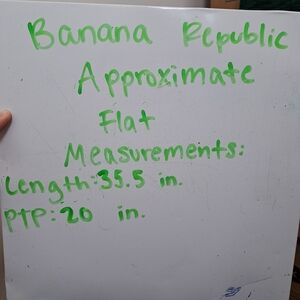 Banana Republic
Approximate
Flat
Measurements:
Length: 35.5 in.
PTP: 20 in.